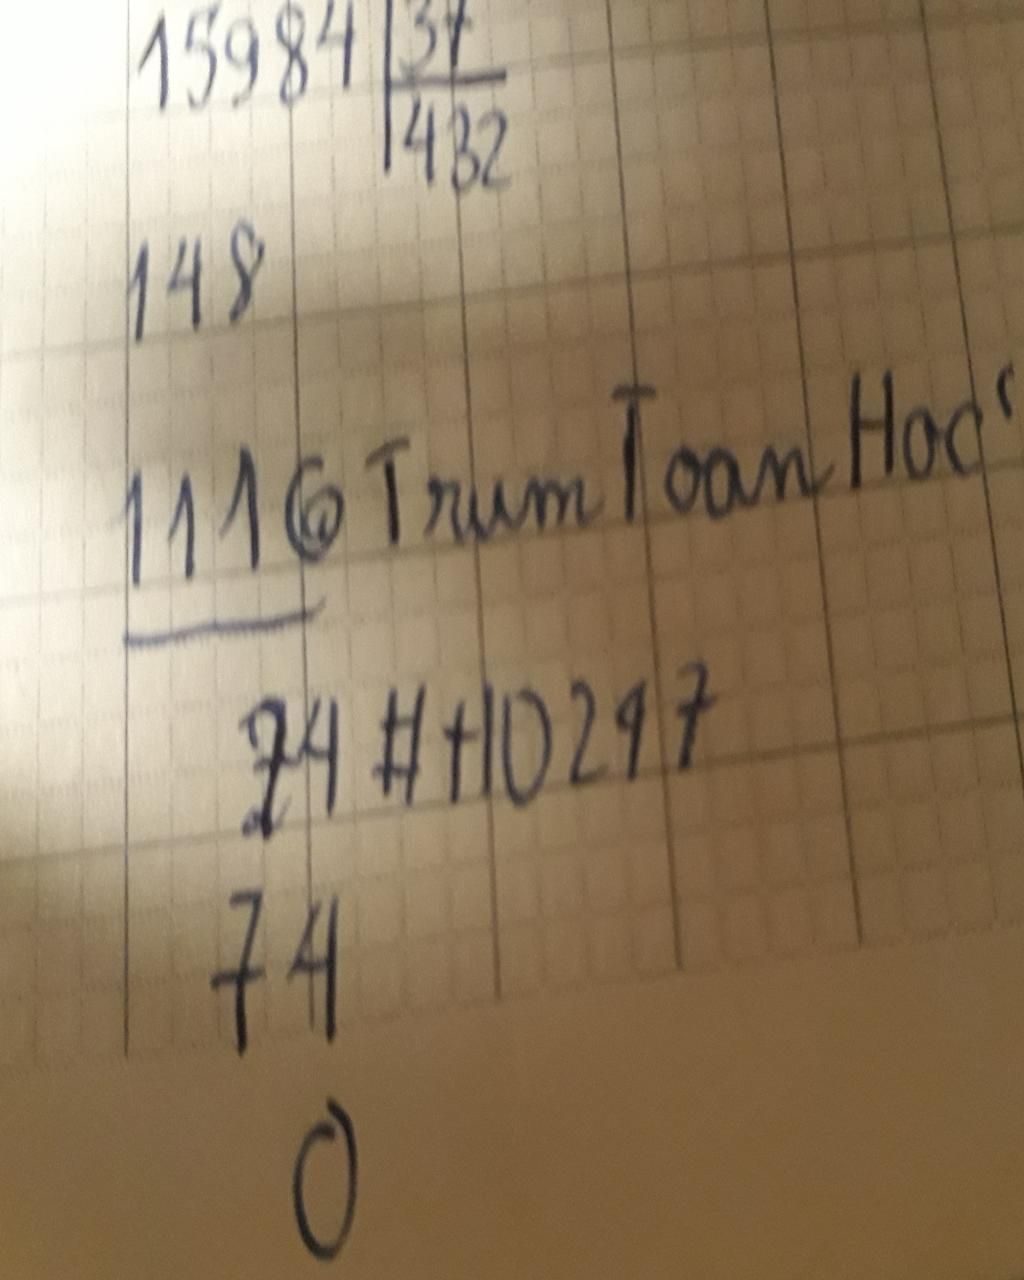 15984 37
432
148
1116 Trum Toan Hoc
74 #H10297
74
0